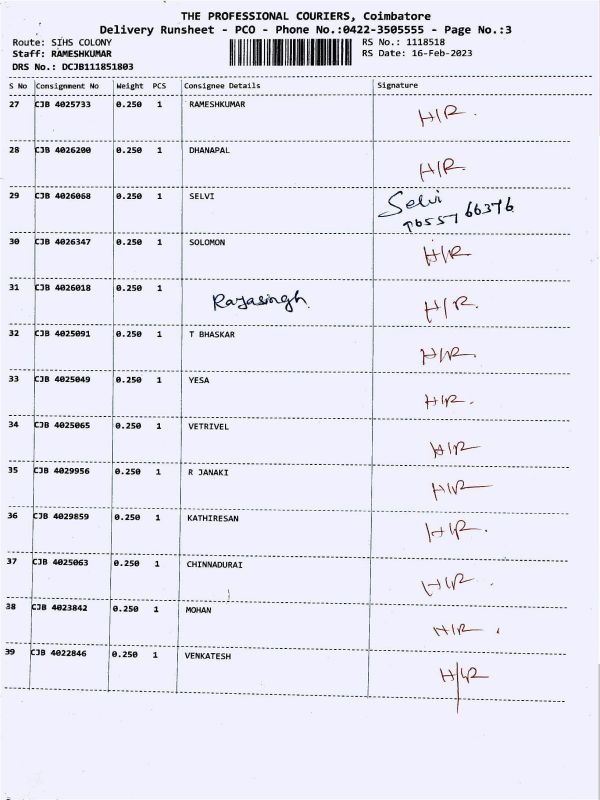 THE PROFESSIONAL COURIERS, Coimbatore
Delivery Runsheet - PCO - Phone No.:0422-3505555 - Page No.:3
Route: SIHS COLONY RS No.: 1118518
Staff: RAMESHKUMAR RS Date: 16-Feb-2023
DRS No.: DCJB111851803
S No Consignment No Weight PCS Consignee Details Signature
27 CJB 4025733 0.250 1 RAMESHKUMAR H/R.
28 CJB 4026200 0.250 1 DHANAPAL H/R.
29 CJB 4026068 0.250 1 SELVI Selvi
9655766376
30 CJB 4026347 0.250 1 SOLOMON H/R
31 CJB 4026018 0.250 1 Rajasingh H/R.
32 CJB 4025091 0.250 1 T BHASKAR H/R.
33 CJB 4025049 0.250 1 YESA H/R.
34 CJB 4025065 0.250 1 VETRIVEL H/R
35 CJB 4029956 0.250 1 R JANAKI H/R
36 CJB 4029859 0.250 1 KATHIRESAN H/R.
37 CJB 4025063 0.250 1 CHINNADURAI H/R.
38 CJB 4023842 0.250 1 MOHAN H/R.
39 CJB 4022846 0.250 1 VENKATESH H/R